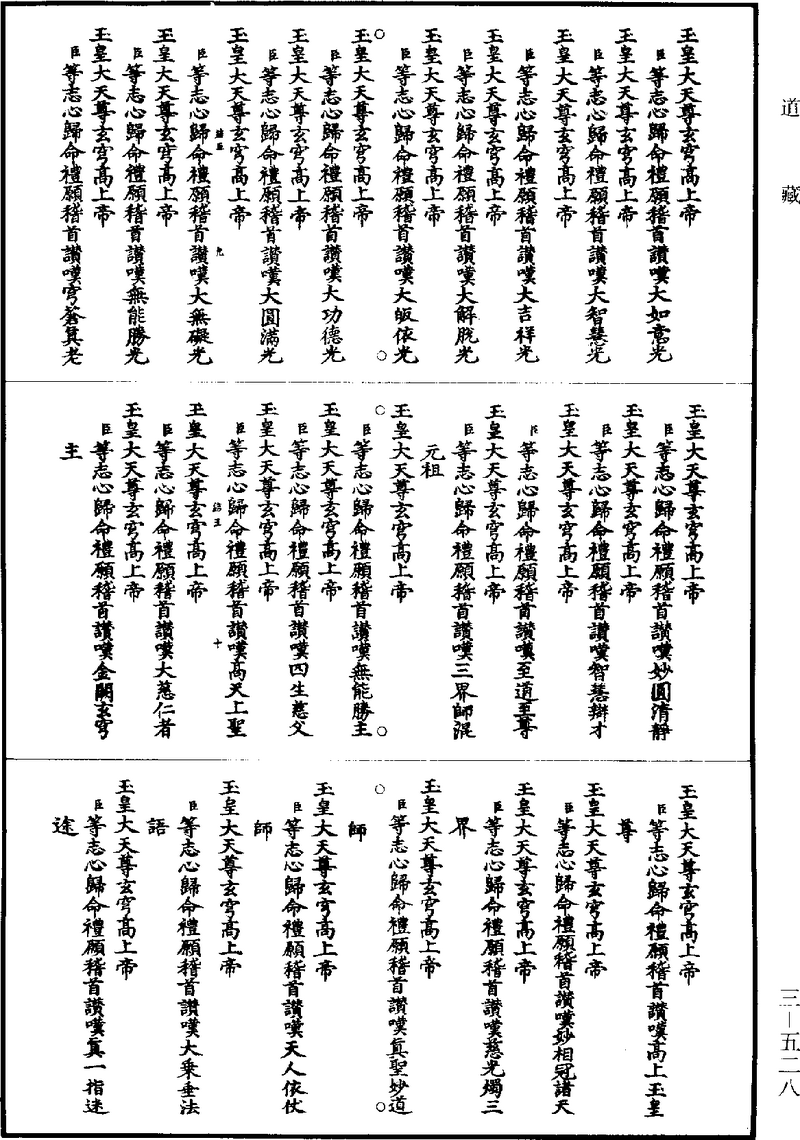 道藏
玉皇大天尊玄穹高上帝
臣等志心歸命禮願稽首讚嘆大如意光
玉皇大天尊玄穹高上帝
臣等志心歸命禮願稽首讚嘆大智慧光
玉皇大天尊玄穹高上帝
臣等志心歸命禮願稽首讚嘆大吉祥光
玉皇大天尊玄穹高上帝
臣等志心歸命禮願稽首讚嘆大解脫光
玉皇大天尊玄穹高上帝
臣等志心歸命禮願稽首讚嘆大皈依光
玉皇大天尊玄穹高上帝
臣等志心歸命禮願稽首讚嘆大功德光
玉皇大天尊玄穹高上帝
臣等志心歸命禮願稽首讚嘆大圓滿光
玉皇大天尊玄穹高上帝
臣等志心歸命禮願稽首讚嘆大無礙光
玉皇大天尊玄穹高上帝
臣等志心歸命禮願稽首讚嘆無能勝光
玉皇大天尊玄穹高上帝
臣等志心歸命禮願稽首讚嘆穹蒼真老
玉皇大天尊玄穹高上帝
臣等志心歸命禮願稽首讚嘆妙圓清靜
玉皇大天尊玄穹高上帝
臣等志心歸命禮願稽首讚嘆智慧辯才
玉皇大天尊玄穹高上帝
臣等志心歸命禮願稽首讚嘆至道至尊
玉皇大天尊玄穹高上帝
臣等志心歸命禮願稽首讚嘆三界師混
元祖
玉皇大天尊玄穹高上帝
臣等志心歸命禮願稽首讚嘆無能勝主
玉皇大天尊玄穹高上帝
臣等志心歸命禮願稽首讚嘆四生慈父
玉皇大天尊玄穹高上帝
臣等志心歸命禮願稽首讚嘆高天上聖
十
玉皇大天尊玄穹高上帝
臣等志心歸命禮願稽首讚嘆大慈仁者
玉皇大天尊玄穹高上帝
臣等志心歸命禮願稽首讚嘆金闕玄穹
主
玉皇大天尊玄穹高上帝
臣等志心歸命禮願稽首讚嘆高上玉皇
尊
玉皇大天尊玄穹高上帝
臣等志心歸命禮願稽首讚嘆妙相冠諸天
玉皇大天尊玄穹高上帝
臣等志心歸命禮願稽首讚嘆慈光燭三
界
玉皇大天尊玄穹高上帝
臣等志心歸命禮願稽首讚嘆真聖妙道
師
玉皇大天尊玄穹高上帝
臣等志心歸命禮願稽首讚嘆天人依仗
師
玉皇大天尊玄穹高上帝
臣等志心歸命禮願稽首讚嘆大乘垂法
語
玉皇大天尊玄穹高上帝
臣等志心歸命禮願稽首讚嘆真一指迷
途
三—五二八